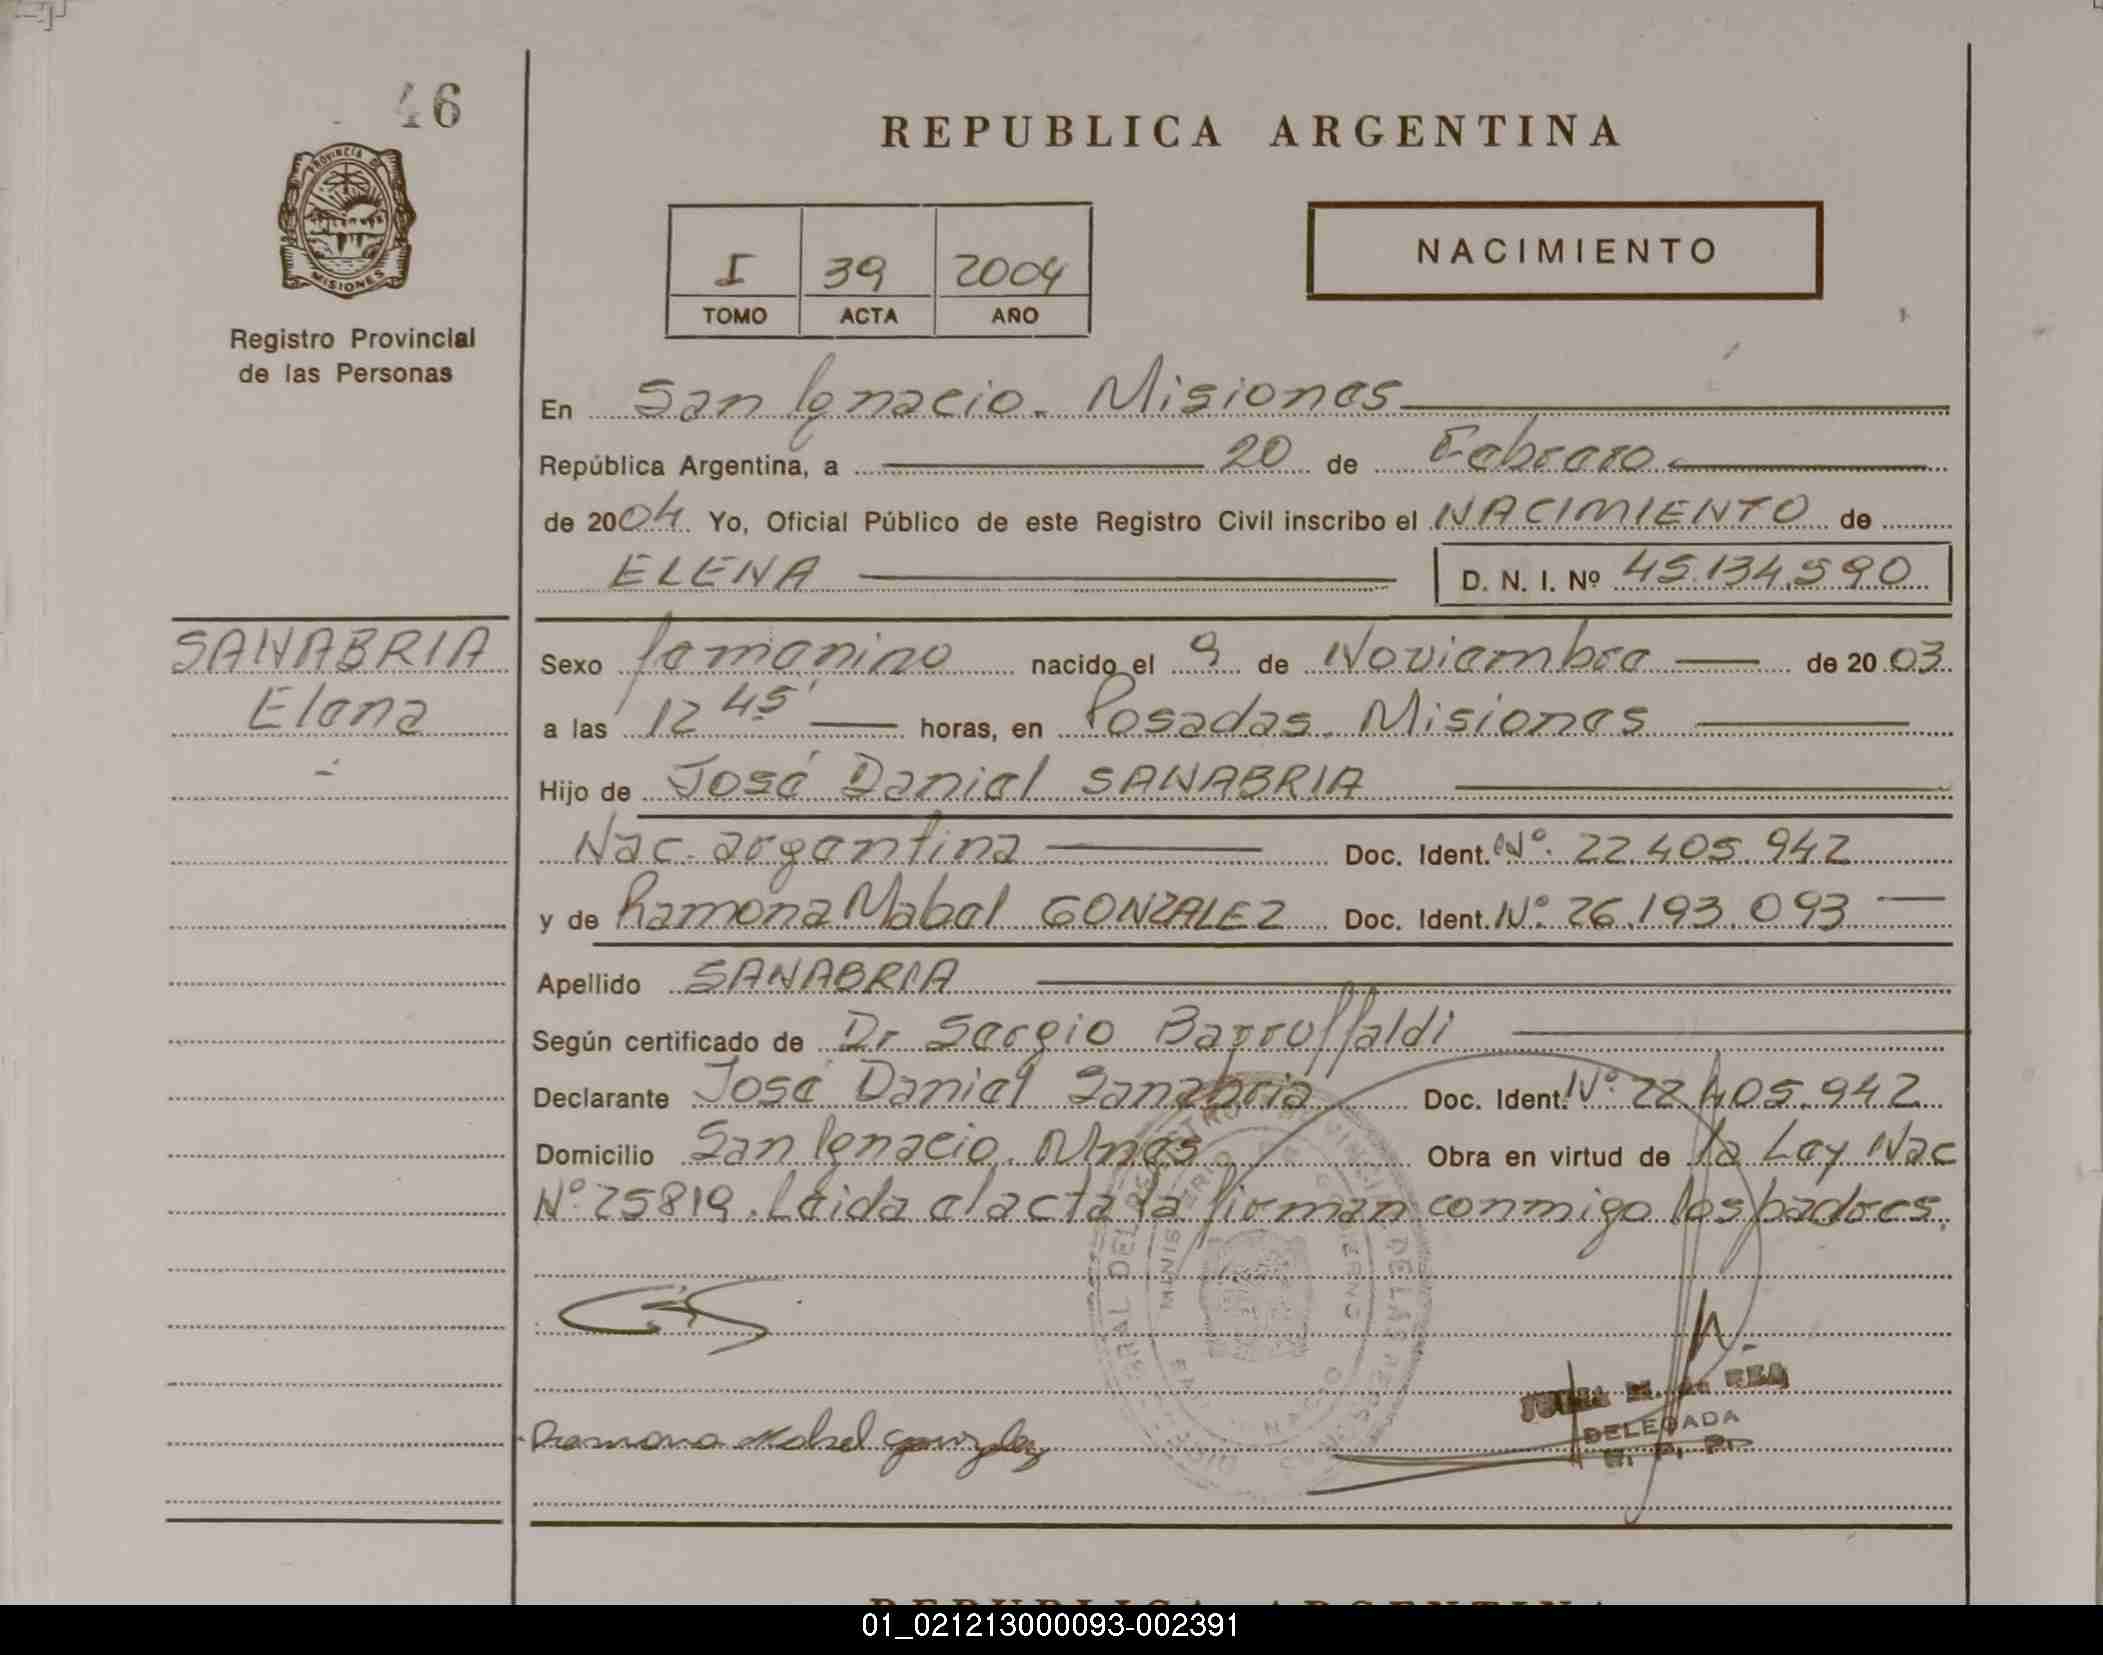 46
REPUBLICA ARGENTINA
PROVINCIA DE
MISIONES
Registro Provincial
de las Personas
I 39 2004
TOMO ACTA AÑO
NACIMIENTO
En San Ignacio. Misiones
República Argentina, a 20 de Febrero
de 2004 Yo, Oficial Público de este Registro Civil inscribo el NACIMIENTO de
ELENA D. N. I. Nº 45.134.590
SANABRIA
Elena
Sexo femenino nacido el 9 de Noviembre de 2003
a las 12 45' horas, en Posadas. Misiones
Hijo de José Daniel SANABRIA
Nac. argentina Doc. Ident. Nº. 22.405.942
y de Ramona Mabel GONZALEZ Doc. Ident. Nº. 26.193.093
Apellido SANABRIA
Según certificado de Dr Sergio Barruffaldi
Declarante José Daniel Sanabria Doc. Ident. Nº. 22.405.942
Domicilio San Ignacio. Mnes Obra en virtud de la Ley Nac
Nº. 25819. Leida el acta la firman conmigo los padres.
Ramona Mabel Gonzalez
DELEGADA
R. P. P.
REPUBLICA ARGENTINA
01_021213000093-002391